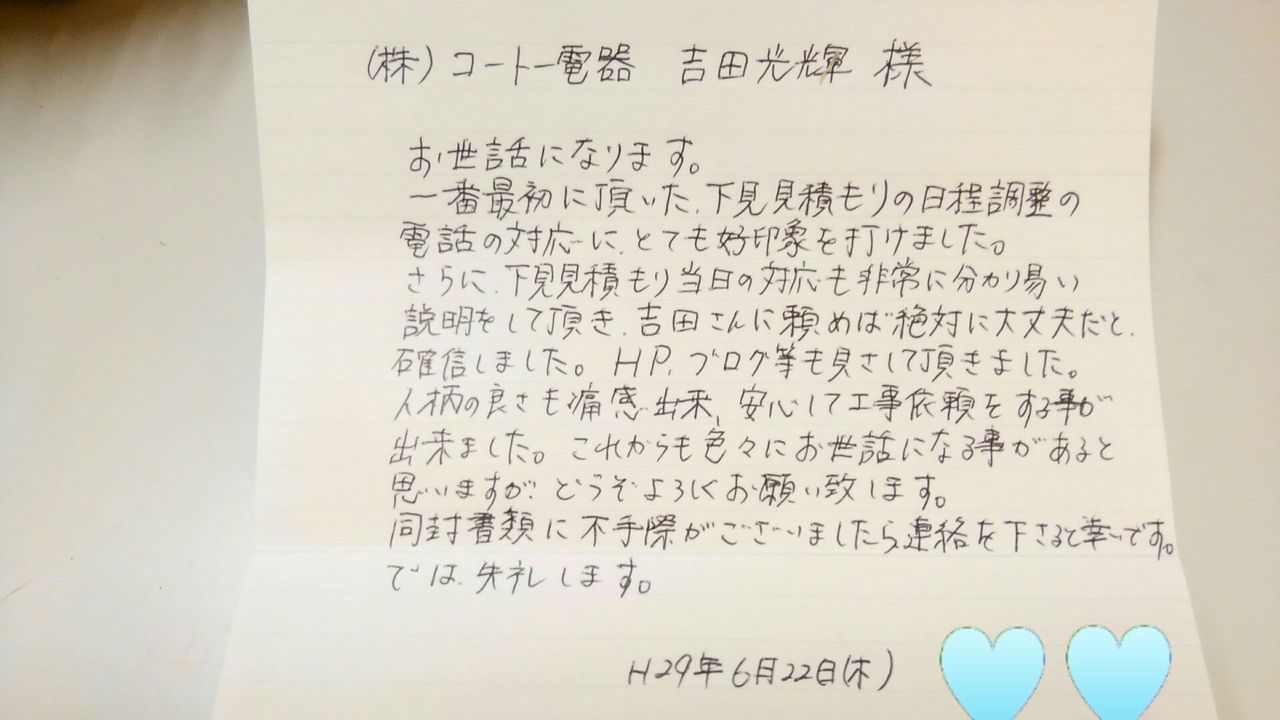 (株)コートー電器 吉田光輝 様
お世話になります。
一番最初に頂いた、下見見積もりの日程調整の
電話の対応に、とても好印象を打けました。
さらに、下見見積もり当日の対応も非常に分かり易い
説明をして頂き、吉田さんに頼めば絶対に大丈夫だと、
確信しました。HP、ブログ等も見さして頂きました。
人柄の良さも痛感出来、安心して工事依頼をする事が
出来ました。これからも色々にお世話になる事があると
思いますが、どうぞよろしくお願い致します。
同封書類に不手際がございましたら連絡を下さると幸いです。
では、失礼します。
H29年6月22日(木)